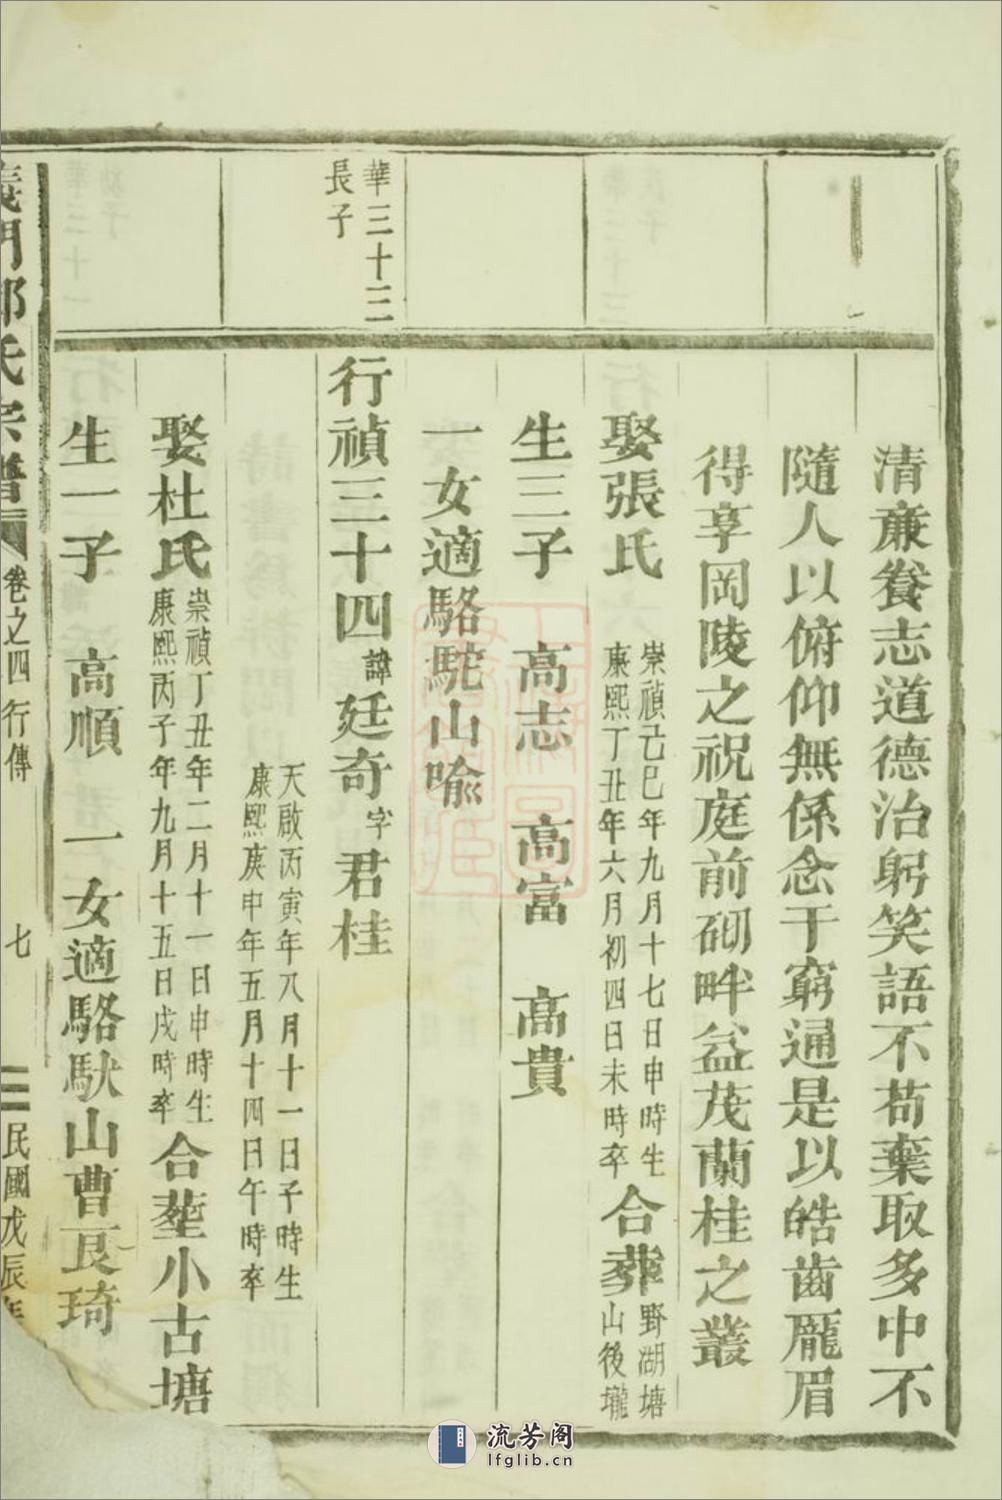 清亷養志道德治躬笑語不苟棄取多中不
隨人以俯仰無係念于窮通是以皓齒厖眉
得享岡陵之祝庭前砌畔益茂蘭桂之叢
娶張氏
崇禎己巳年九月十七日申時生
康熙丁丑年六月初四日未時卒
合葬
野湖塘
山後瓏
生三子 高志 高富 高貴
一女適駱駝山喩
華三十三
長子
行禎三十四諱廷奇字君桂
天啟丙寅年八月十一日子時生
康熙庚申年五月十四日午時卒
娶杜氏
崇禎丁丑年二月十一日申時生
康熙丙子年九月十五日戌時卒
合塟小古塘
生一子 高順 一女適駱駄山曹良琦
義門 氏宗譜 卷之四 行傳 七 民國戊辰年
流芳阁
lfglib.cn